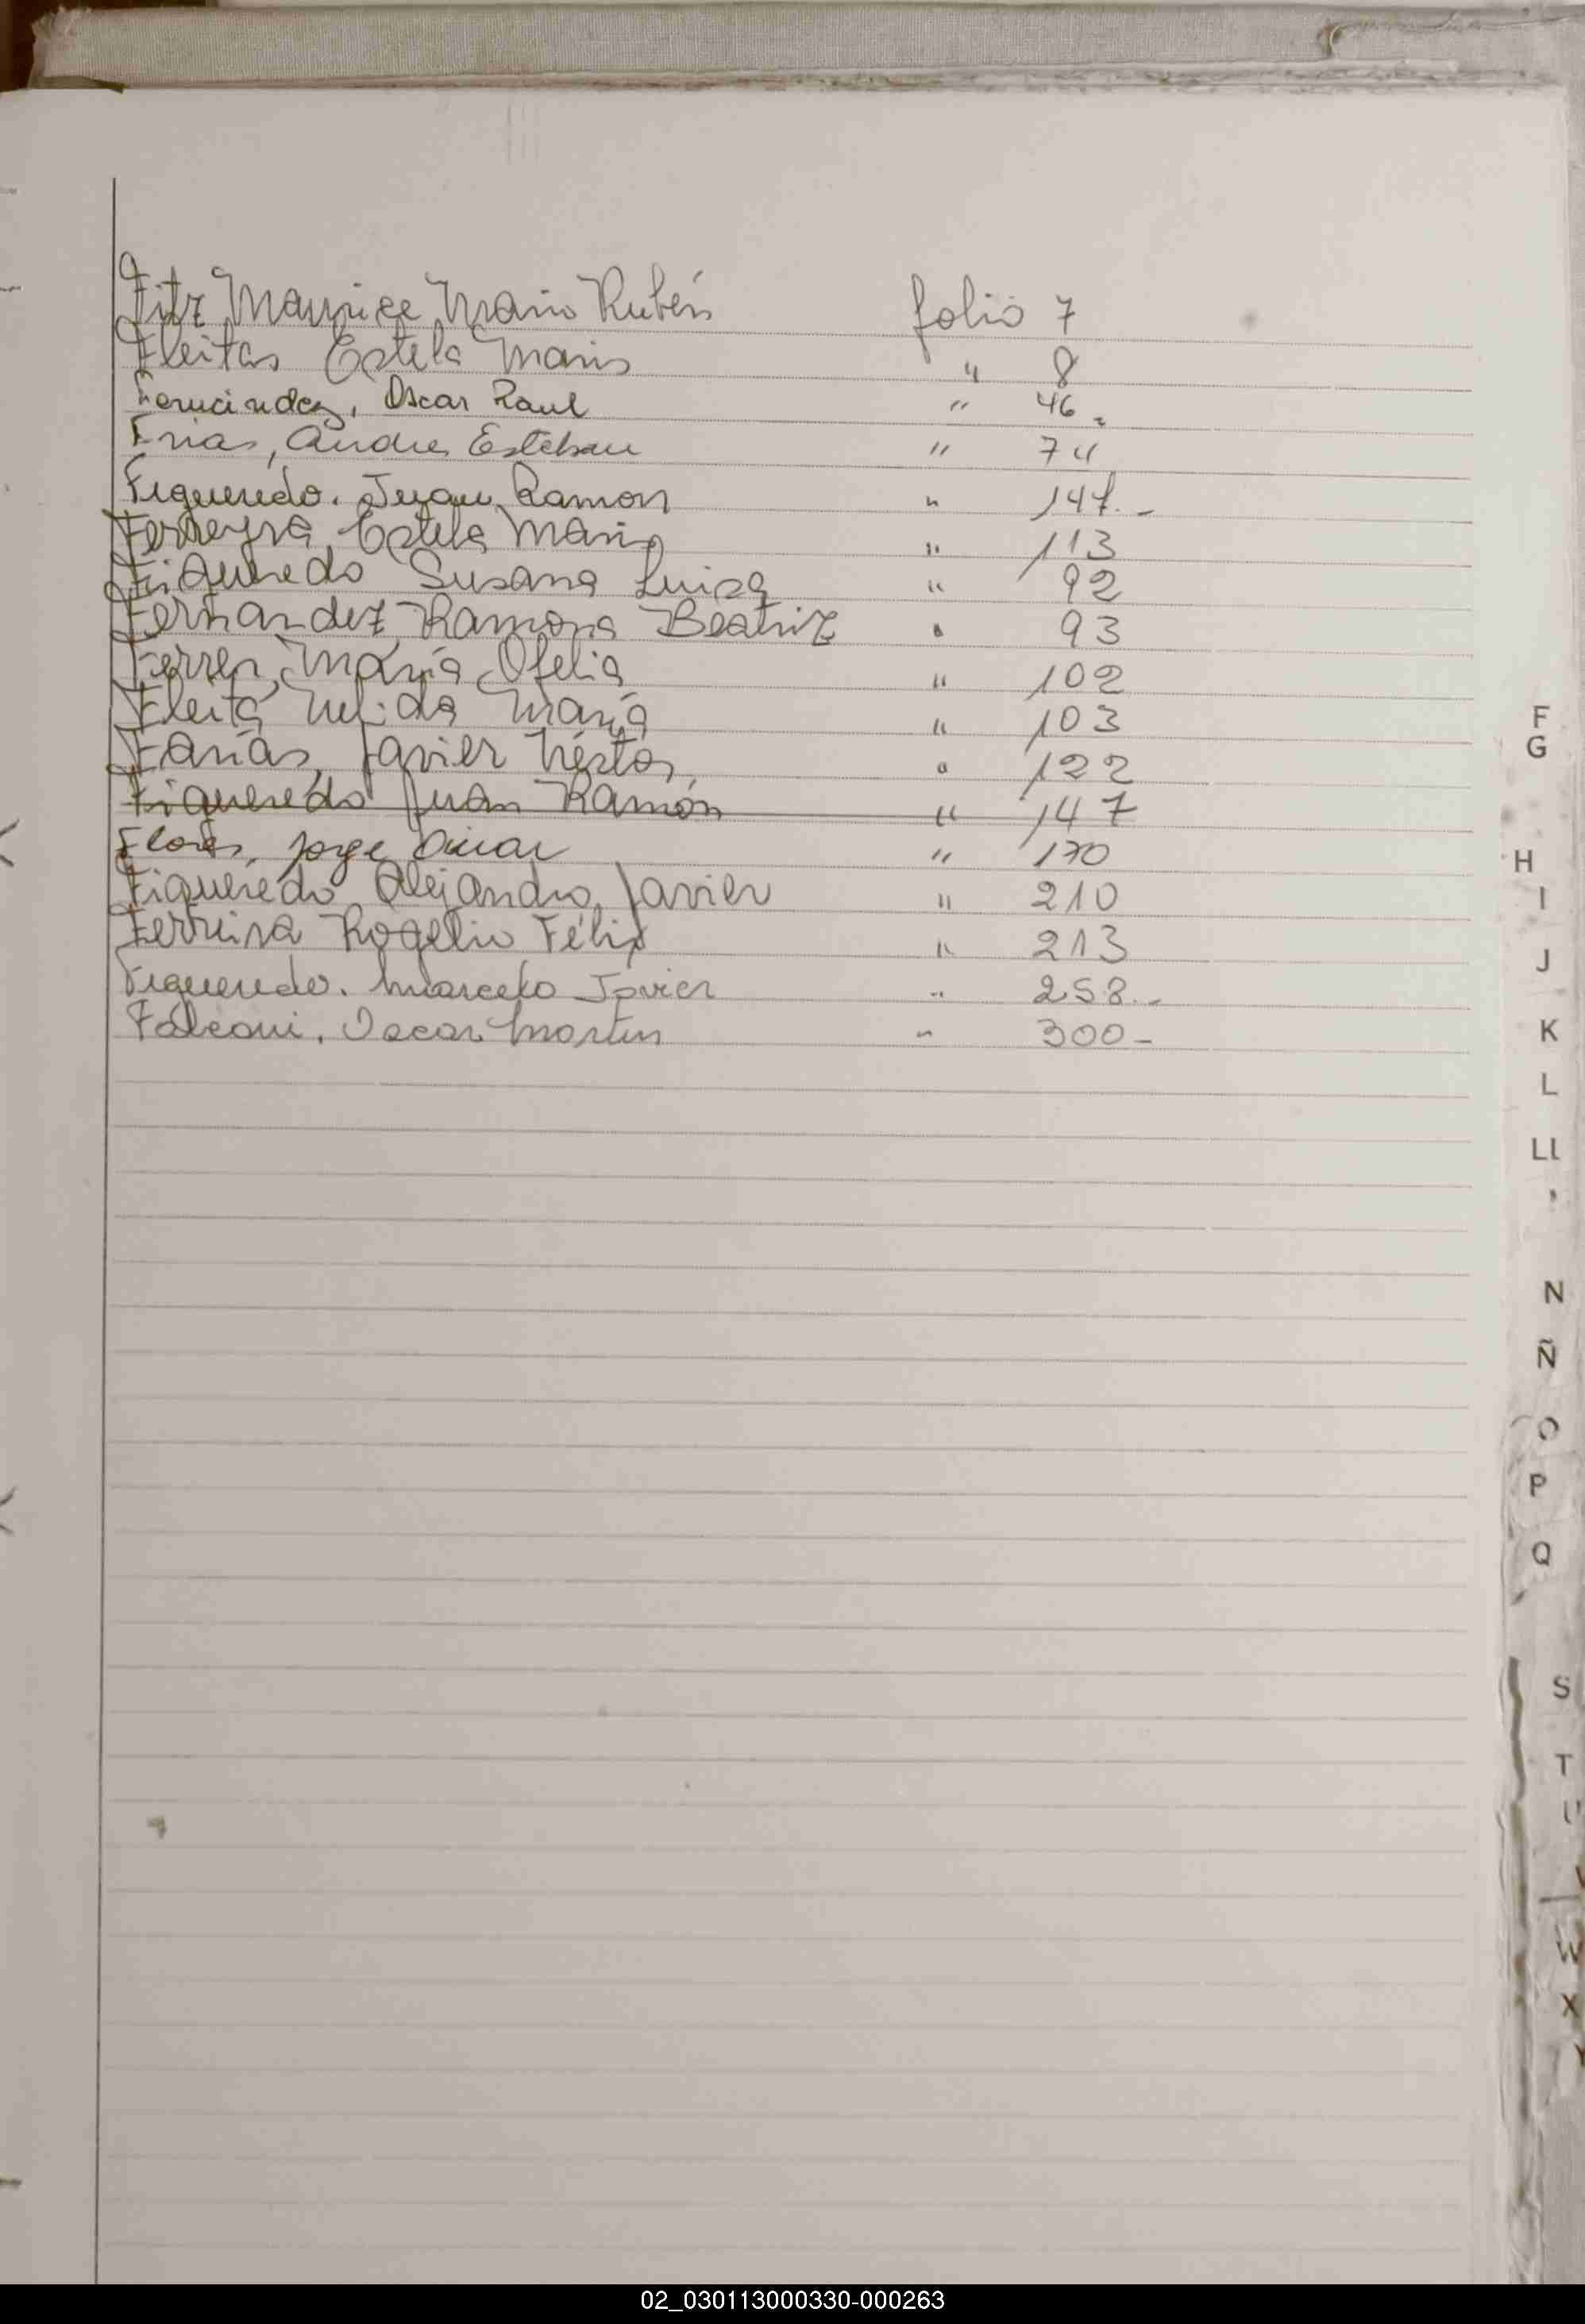 Fitz Maurice Mario Rubén folio 7
Fleitas Estela Maris " 8
Fernández, Oscar Raul " 46
Frias, Andre Esteban " 74
Figueredo. Juan Ramon " 147.-
Ferreyra Estela Maris " 113
Figueredo Susana Luisa " 92
Fernandez Ramona Beatriz " 93
Ferrer, María Ofelia " 102
Fleita Nélida María " 103
Farías, Javier Néstor " 122
Figueredo Juan Ramón " 147
Flores, Jorge Omar " 170
Figueredo Alejandro Javier " 210
Ferreira Rogelio Félix " 213
Figueredo. Marcelo Javier " 258.-
Falconi, Oscar Martin " 300-
F
G
H
I
J
K
L
LL
N
Ñ
O
P
Q
S
T
U
W
X
Y
02_030113000330-000263